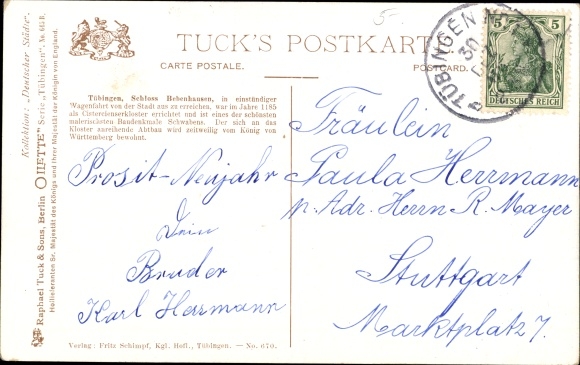 5
TUCK'S POSTKARTE
CARTE POSTALE.
POSTCARD.
TÜBINGEN
30
5 5
DEUTSCHES REICH
Kollektion: „Deutscher Städte".
OILETTE" Serie „Tübingen", No. 645 B.
Raphael Tuck & Sons, Berlin
Hoflieferanten Sr. Majestät des Königs und Ihrer Majestät der Königin von England.
Tübingen, Schloss Bebenhausen, in einstündiger
Wagenfahrt von der Stadt aus zu erreichen, war im Jahre 1185
als Cistercienserkloster errichtet und ist eines der schönsten
malerischten Baudenkmale Schwabens. Der sich an das
Kloster anreihende Abtbau wird zeitweilig vom König von
Württemberg bewohnt.
Prosit-Neujahr
Dein
Bruder
Karl Herrmann
Fräulein
Paula Herrmann
p. Adr. Herrn R. Mayer
Stuttgart
Marktplatz 7.
Verlag: Fritz Schimpf, Kgl. Hofl., Tübingen. — No. 670.